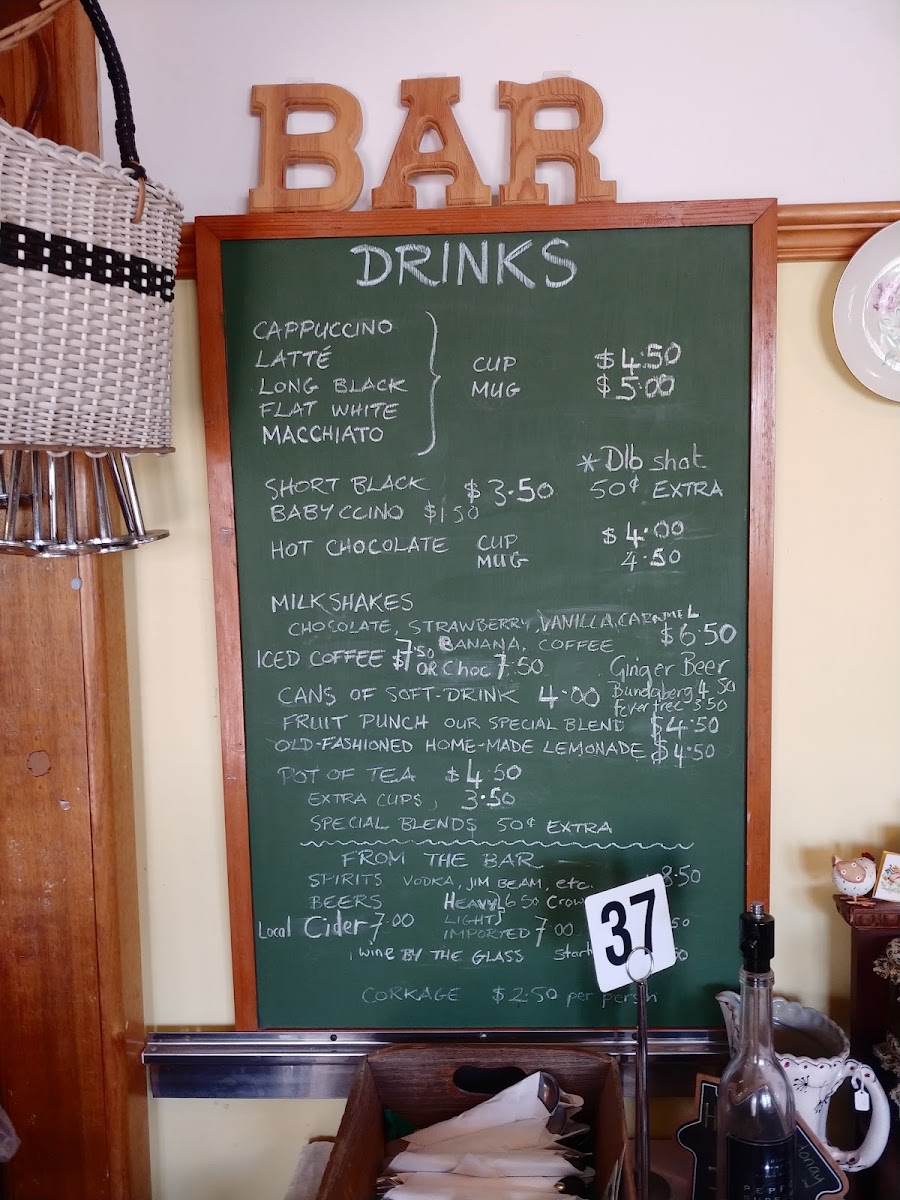 BAR
DRINKS
CAPPUCCINO
LATTÉ
LONG BLACK
FLAT WHITE
MACCHIATO
CUP $4.50
MUG $5.00
*Dlb shot
50¢ EXTRA
SHORT BLACK $3.50
BABYCCINO $1.50
HOT CHOCOLATE CUP $4.00
MUG 4.50
MILKSHAKES
CHOCOLATE, STRAWBERRY, VANILLA, CARAMEL
BANANA, COFFEE $6.50
ICED COFFEE $7.50 OR Choc 7.50
Ginger Beer
Bundaberg 4.50
fever tree 3.50
CANS OF SOFT-DRINK 4.00
FRUIT PUNCH OUR SPECIAL BLEND $4.50
OLD-FASHIONED HOME-MADE LEMONADE $4.50
POT OF TEA $4.50
EXTRA CUPS, 3.50
SPECIAL BLENDS 50¢ EXTRA
FROM THE BAR
SPIRITS VODKA, JIM BEAM, etc. 8.50
BEERS HEAVY 6.50
LIGHT
IMPORTED 7.00
Local Cider 7.00
wine BY THE GLASS
CORKAGE $2.50 per person
37